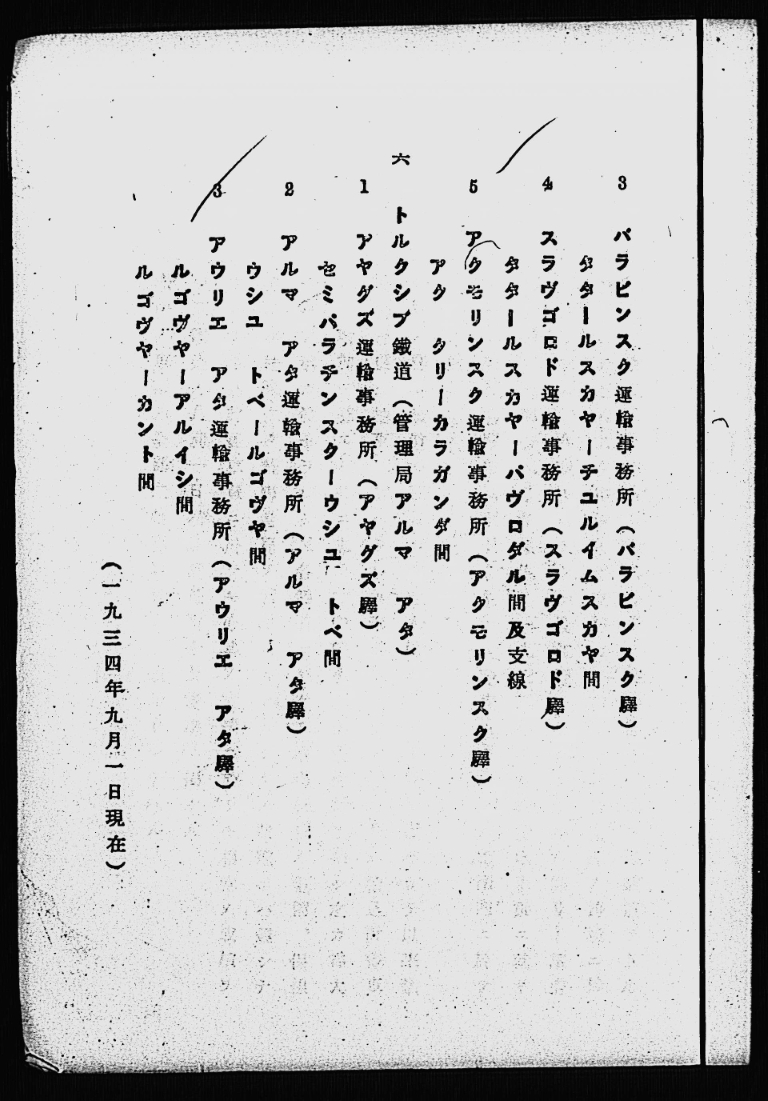 3 バラビンスク運輸事務所（バラビンスク驛）
タタールスカヤーチユルイムスカヤ間
4 スラヴゴロド運輸事務所（スラヴゴロド驛）
タタールスカヤーパヴロダル間及支線
5 アクモリンスク運輸事務所（アクモリンスク驛）
アク タリーカラガンダ間
六 トルクシブ鐵道（管理局アルマ アタ）
1 アヤグズ運輸事務所（アヤグズ驛）
セミパラチンスクーウシユ トベ間
2 アルマ アタ運輸事務所（アルマ アタ驛）
ウシユ トベールゴヴヤ間
3 アウリエ アタ運輸事務所（アウリエ アタ驛）
ルゴヴヤーアルイシ間
ルゴヴヤーカント間
（一九三四年九月一日現在）